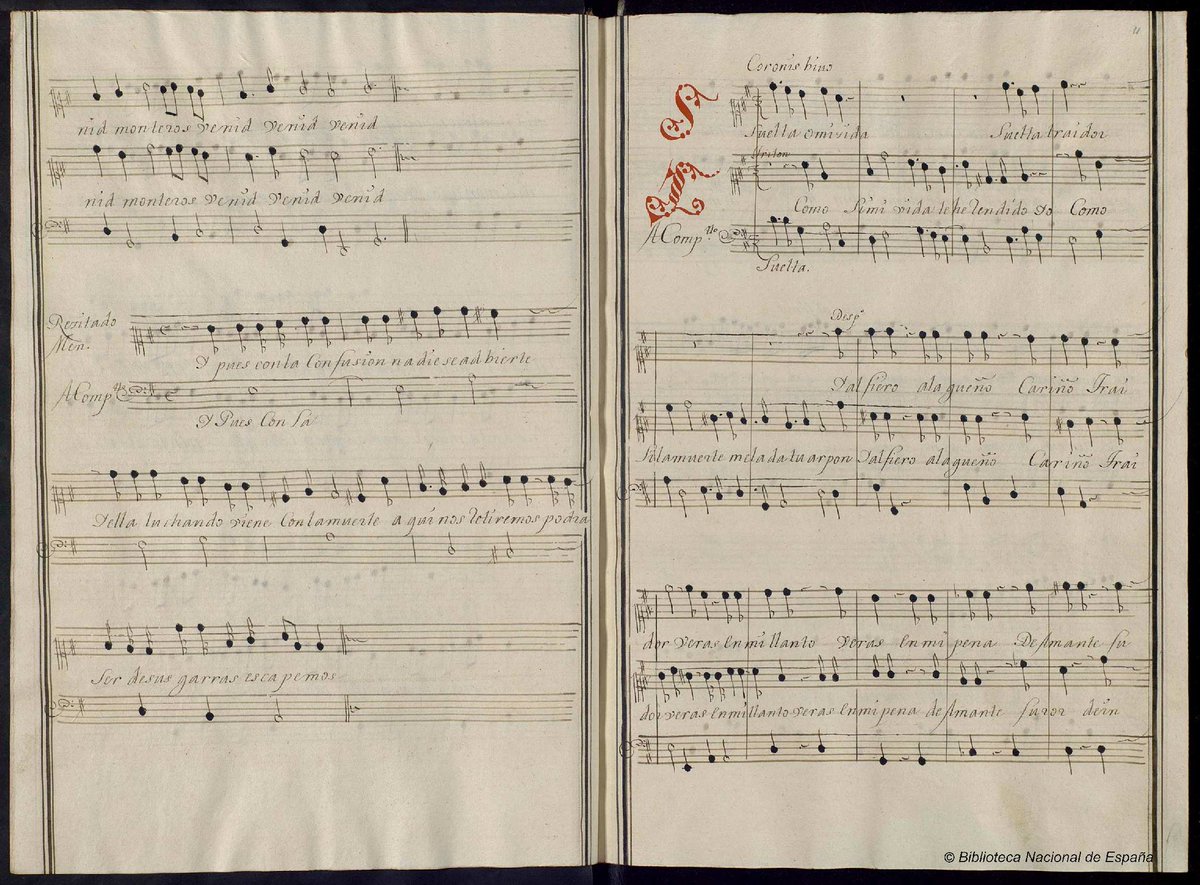 nid monteros venid venid venid
nid monteros venid venid venid
Rezitado
Men.
Y pues con la Confusion nadie se ad bierte
AComp.to
Y Pues Con la
Della luchando viene Con la muerte a qui nos retiremos podra
Ser de sus garras esca pemos
11
Coronis hiuo
Suelta omizida
Suelta traidor
Triton
Como Si mi vida te he rendido Yo Como
AComp.to
Suelta.
Desp.o
Yal fiero ala gueño Cariño Trai
Solamuerte me la da tu arpon Yal fiero ala gueño Cariño Trai
dor veras en mi llanto veras en mi pena De Amante fu
dor veras en mi llanto veras en mi pena de Amante furor de in
© Biblioteca Nacional de España